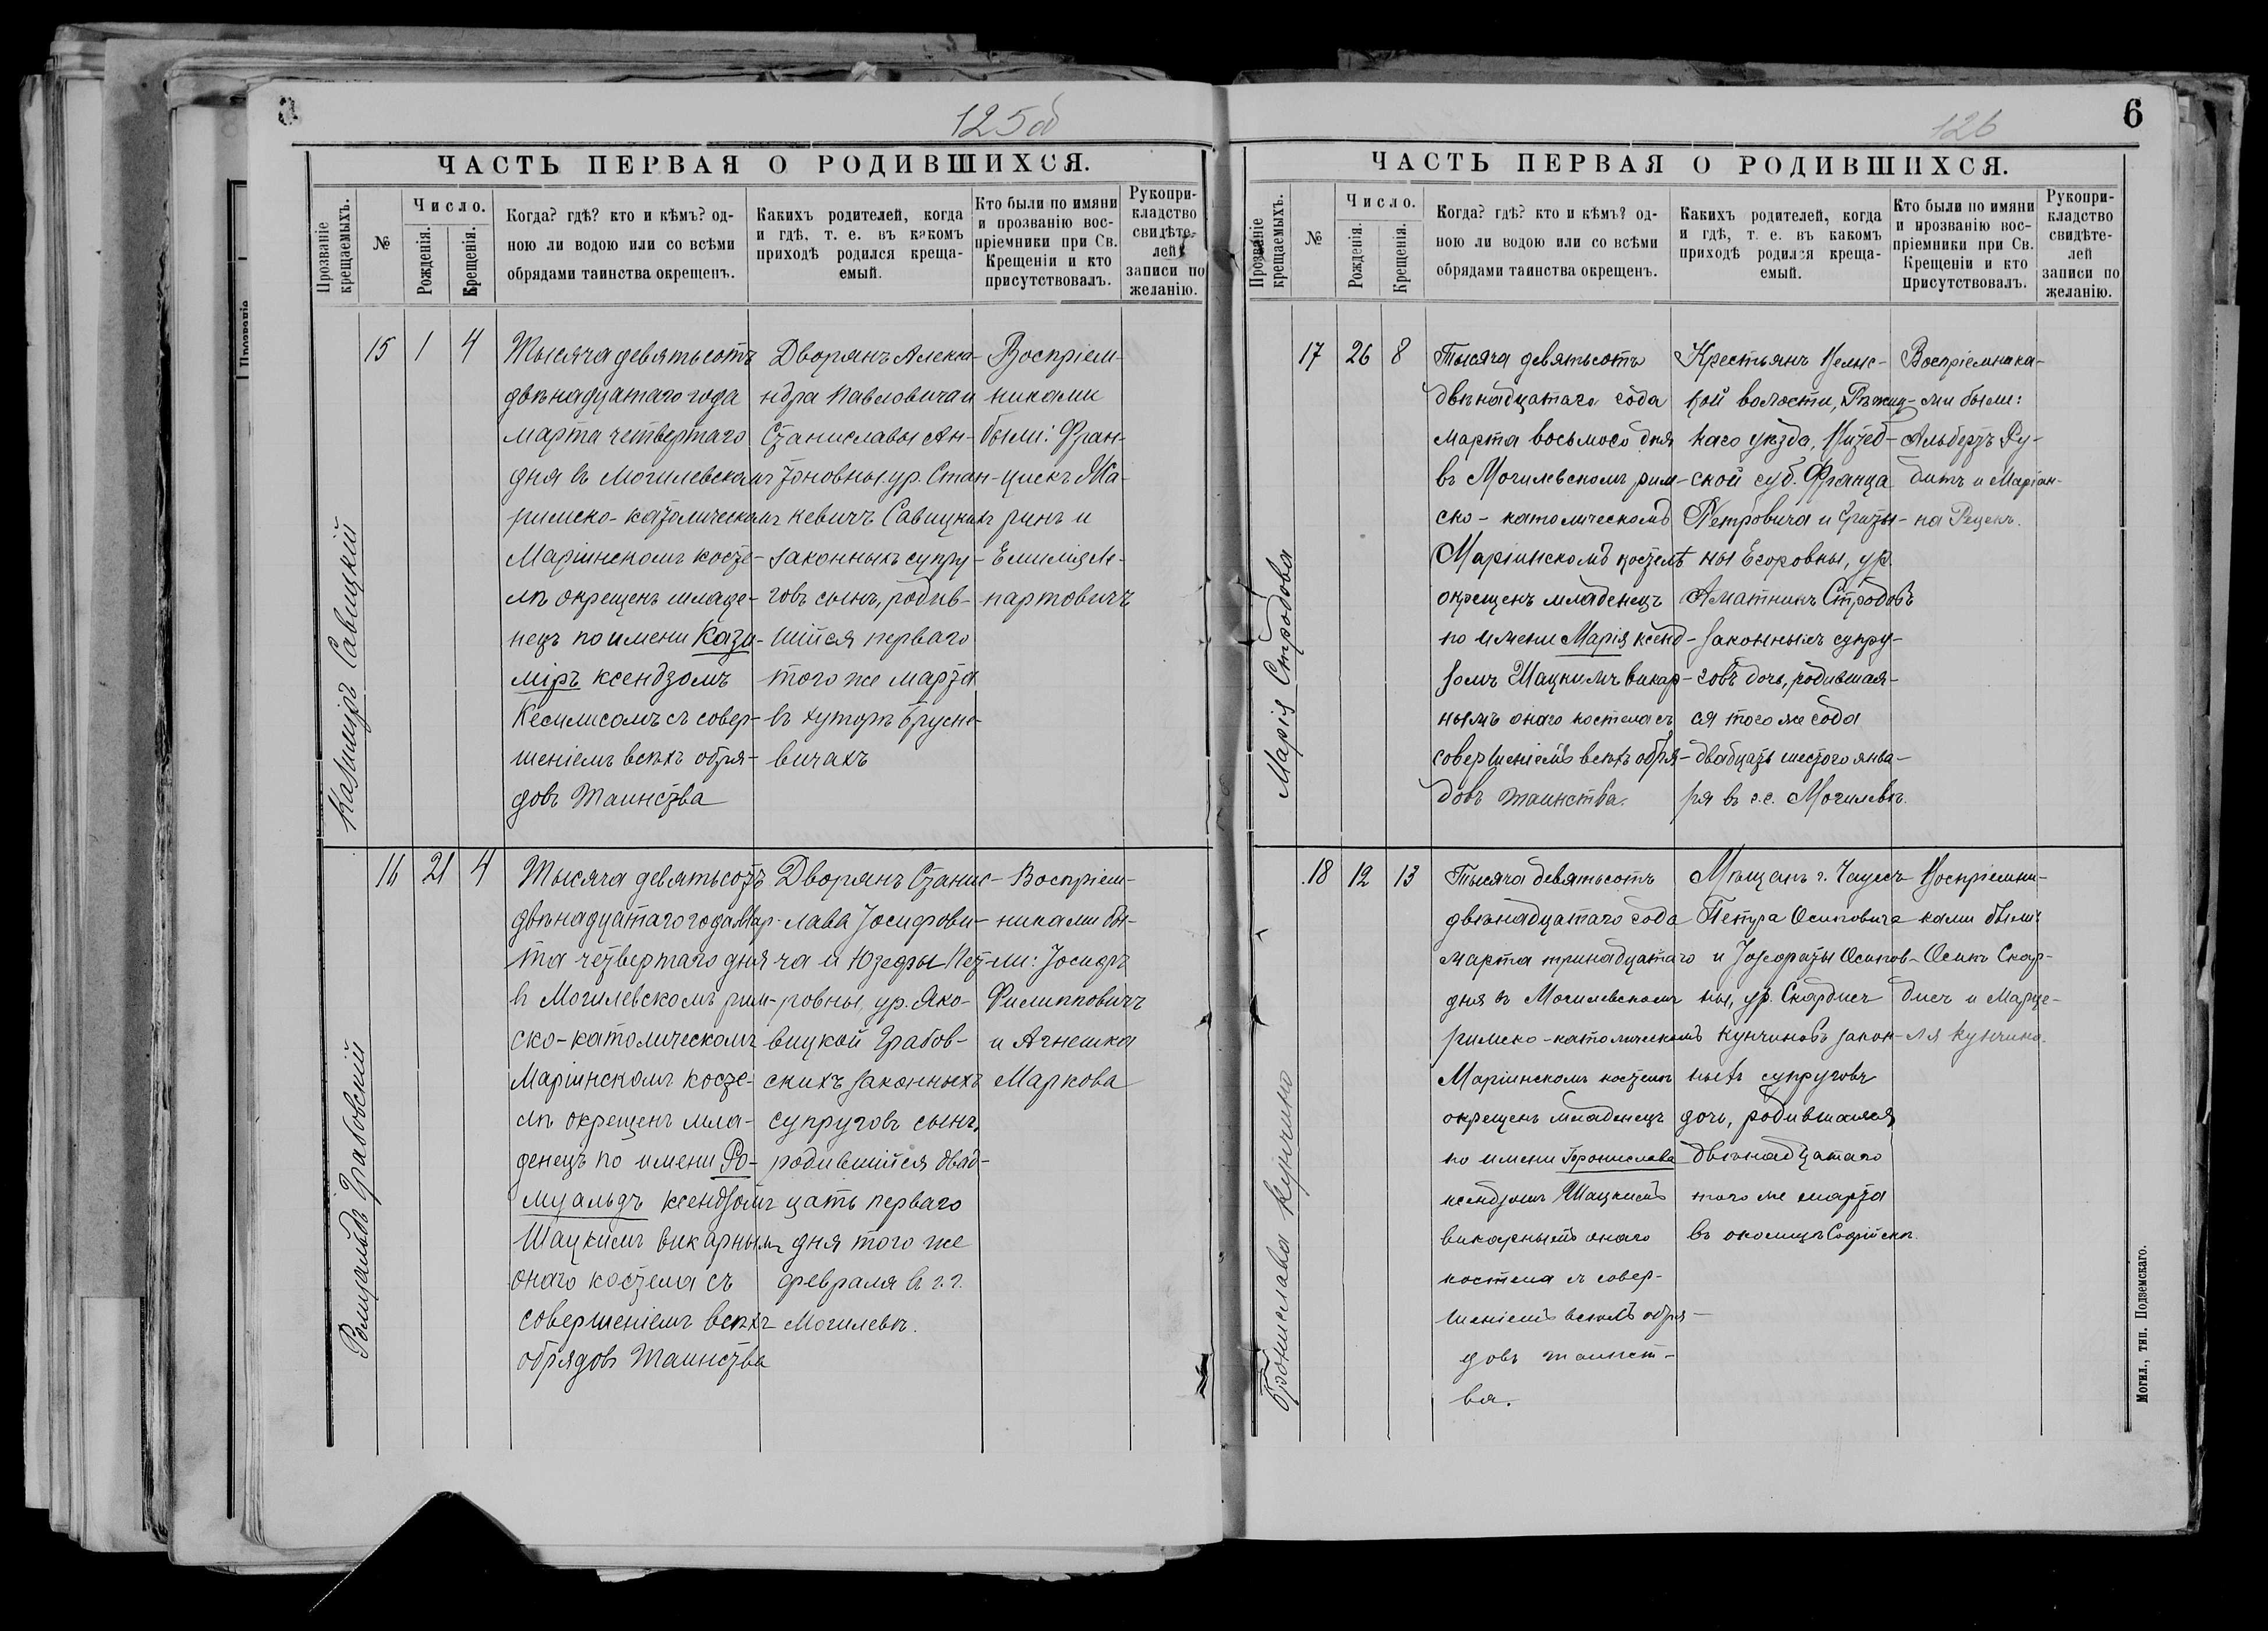 125об
ЧАСТЬ ПЕРВАЯ О РОДИВШИХСЯ.
Прозваніе крещаемыхъ.
№
Число.
Рожденія.
Крещенія.
Когда? гдѣ? кто и кѣмъ? од-
ною ли водою или со всѣми
обрядами таинства окрещенъ.
Какихъ родителей, когда
и гдѣ, т. е. въ какомъ
приходѣ родился креща-
емый.
Кто были по имяни
и прозванію вос-
пріемники при Св.
Крещеніи и кто
присутствовалъ.
Рукопри-
кладство
свидѣте-
лей
записи по
желанію.
Казимиръ Савицкій
15 1 4
Тысяча девятьсотъ
двѣнадцатаго года
марта четвертаго
дня въ Могилевскомъ
римско-католическомъ
Маріинскомъ косте-
лѣ окрещенъ младе-
нецъ по имени Кази-
міръ ксендзомъ
Кесилисомъ съ совер-
шеніемъ всѣхъ обря-
довъ Таинства
Дворянъ Алекса-
ндра Павловича и
Станиславы Ан-
тоновны ур. Стан-
кевичъ Савицкихъ
законныхъ супру-
говъ сынъ, родив-
шійся перваго
того же марта
въ хуторѣ Брусне-
вичахъ
Воспріем-
никами
были: Фран-
цискъ Ма-
ринъ и
Емилія М-
партовичъ
Ромуальдъ Грабовскій
16 21 4
Тысяча девятьсотъ
двѣнадцатаго года Мар-
та четвертаго дня
въ Могилевскомъ рим-
ско-католическомъ
Маріинскомъ косте-
лѣ окрещенъ мла-
денецъ по имени Ро-
муальдъ ксендзомъ
Шацкимъ викарнымъ
онаго костела съ
совершеніемъ всѣхъ
обрядовъ Таинства
Дворянъ Станис-
лава Іосифови-
ча и Юзефы Пет-
ровны, ур. Яко-
вицкой Грабов-
скихъ законныхъ
супруговъ сынъ,
родившійся двад-
цать перваго
дня того же
февраля въ г. г.
Могилевѣ.
Воспріем-
никами бы-
ли: Іосифъ
Филипповичъ
и Агнешка
Маркова
126
6
ЧАСТЬ ПЕРВАЯ О РОДИВШИХСЯ.
Прозваніе крещаемыхъ.
№
Число.
Рожденія.
Крещенія.
Когда? гдѣ? кто и кѣмъ? од-
ною ли водою или со всѣми
обрядами таинства окрещенъ.
Какихъ родителей, когда
и гдѣ, т. е. въ какомъ
приходѣ родился креща-
емый.
Кто были по имяни
и прозванію вос-
пріемники при Св.
Крещеніи и кто
присутствовалъ.
Рукопри-
кладство
свидѣте-
лей
записи по
желанію.
Марія Стродова
17 26 8
Тысяча девятьсотъ
двѣнадцатаго года
марта восьмого дня
въ Могилевскомъ рим-
ско-католическомъ
Маріинскомъ костелѣ
окрещенъ младенецъ
по имени Марія ксенд-
зомъ Шацкимъ викар-
нымъ онаго костела съ
совершеніемъ всѣхъ обря-
довъ таинства.
Крестьянъ Велис-
кой волости, Рѣжиц-
каго уѣзда, Витеб-
ской губ. Франца
Петровича и
ны Егоровны, ур.
Аматникъ Стродовъ
законныхъ супру-
говъ дочь, родившая-
ся того же года
двадцать шестого янва-
ря въ г. г. Могилевѣ.
Воспріемника-
ми были:
Альбертъ Ру-
битъ и Маріан-
на Рецекъ.
Бронислава Кунчино
18 12 13
Тысяча девятьсотъ
двѣнадцатаго года
марта тринадцатаго
дня въ Могилевскомъ
римско-католическомъ
Маріинскомъ костелѣ
окрещенъ младенецъ
по имени Бронислава
ксендзомъ Шацкимъ
викарнымъ онаго
костела съ совер-
шеніемъ всѣхъ обря-
довъ таинст-
ва.
Мѣщанъ г. Чаусъ
Петра Осиповича
и Іозефаты Осипов-
ны, ур. Скарбисъ
Кунчиновъ закон-
ныхъ супруговъ
дочь, родившаяся
двѣнадцатаго
того же марта
въ околицѣ Софійскѣ.
Воспріемни-
ками были
Осипъ Скар-
бисъ и Марце-
ля Кунчино.
Могил., тип. Подземскаго.